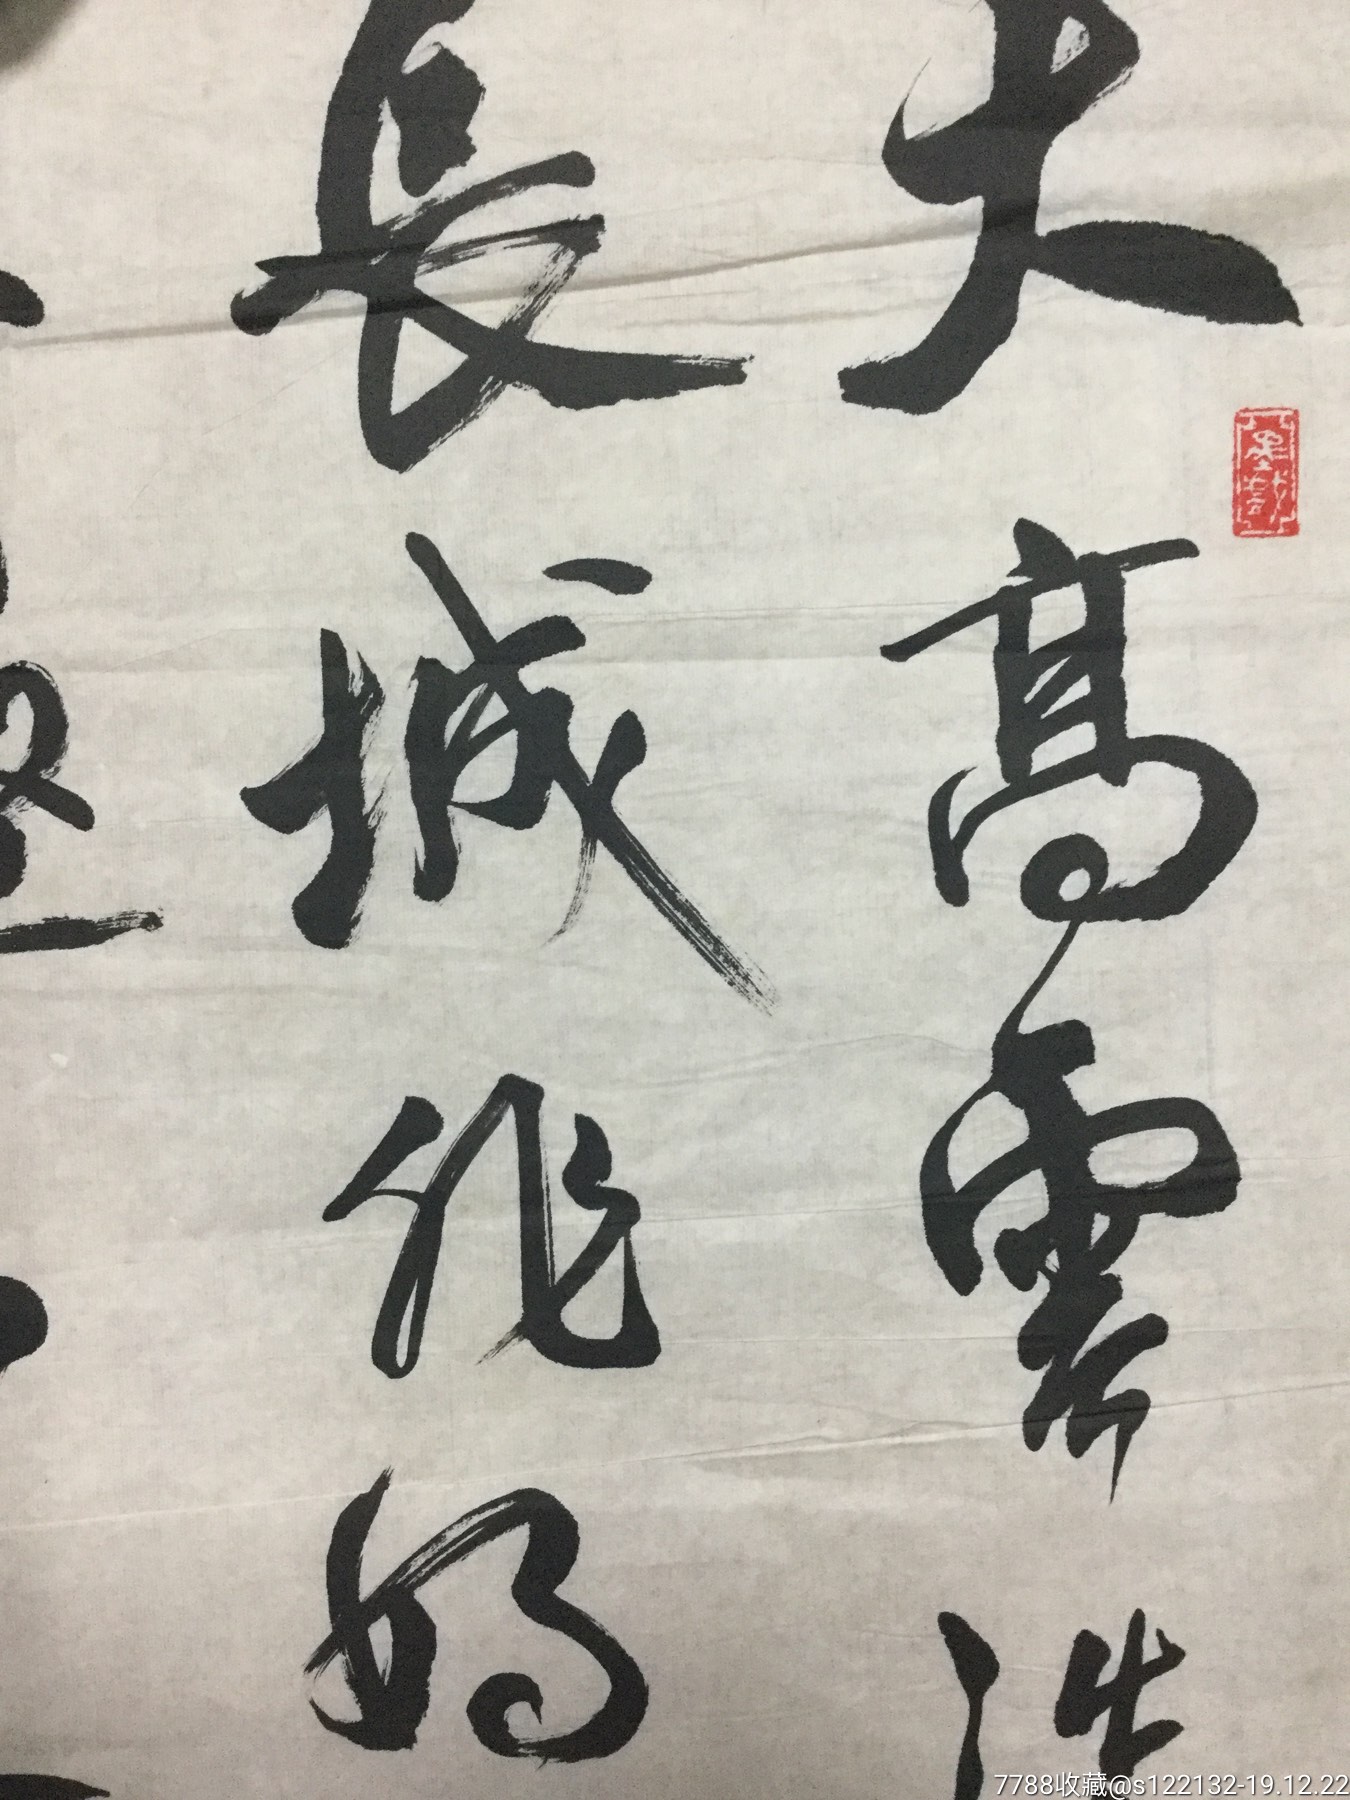 天高雲淡
長城非好
7788收藏@s122132-19.12.22